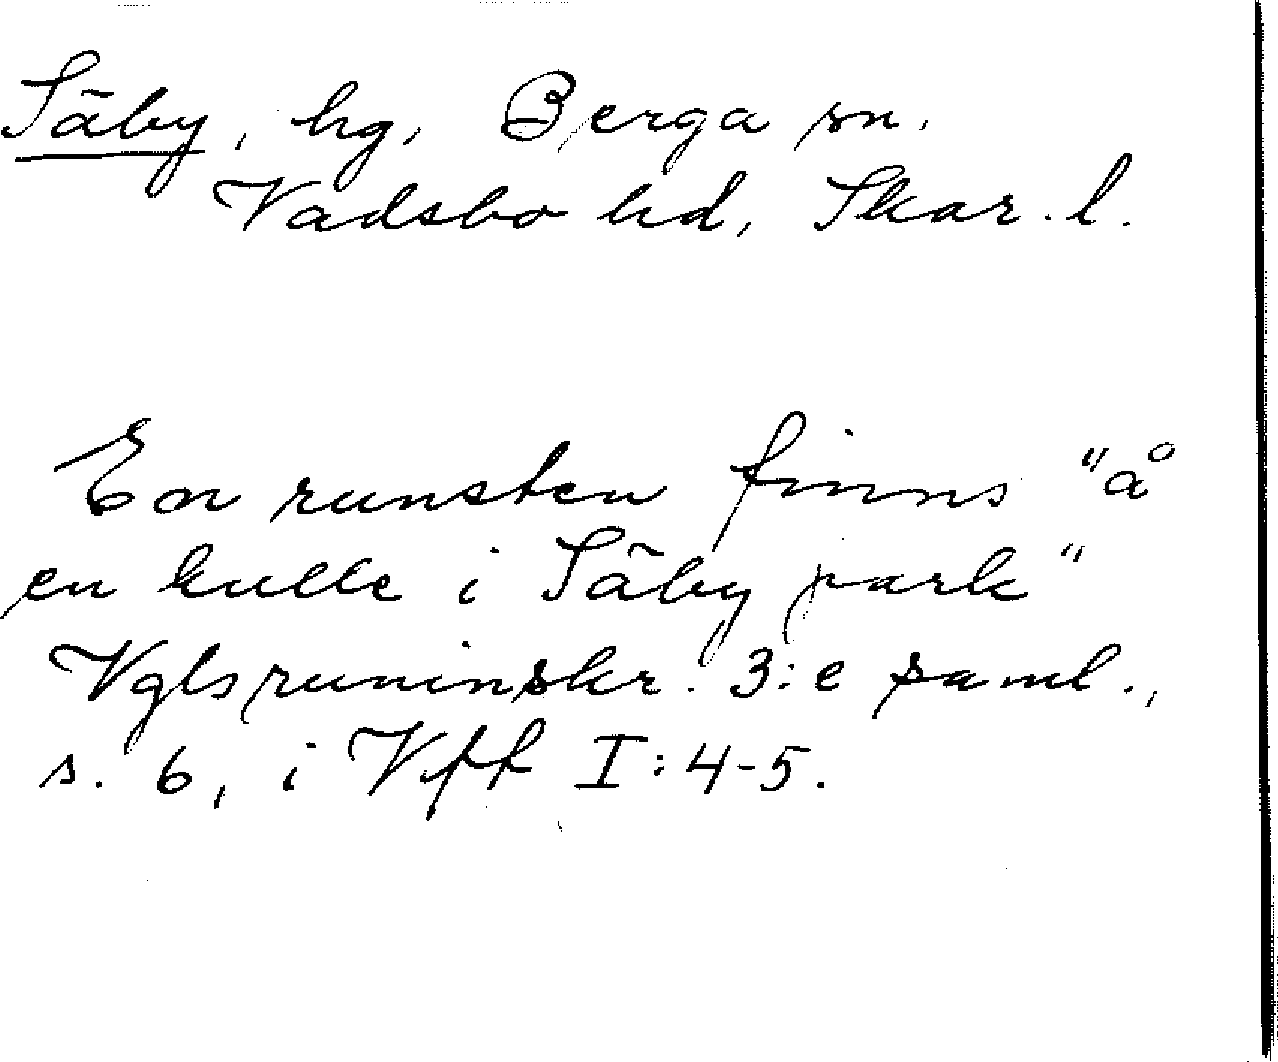 Säby, hg, Berga sn.
Vadsbo hd, Skar. l.
En runsten finns "å
en kulle i Säby park"
Vglsruninskr. 3:e saml.,
s. 6, i Vff I:4-5.